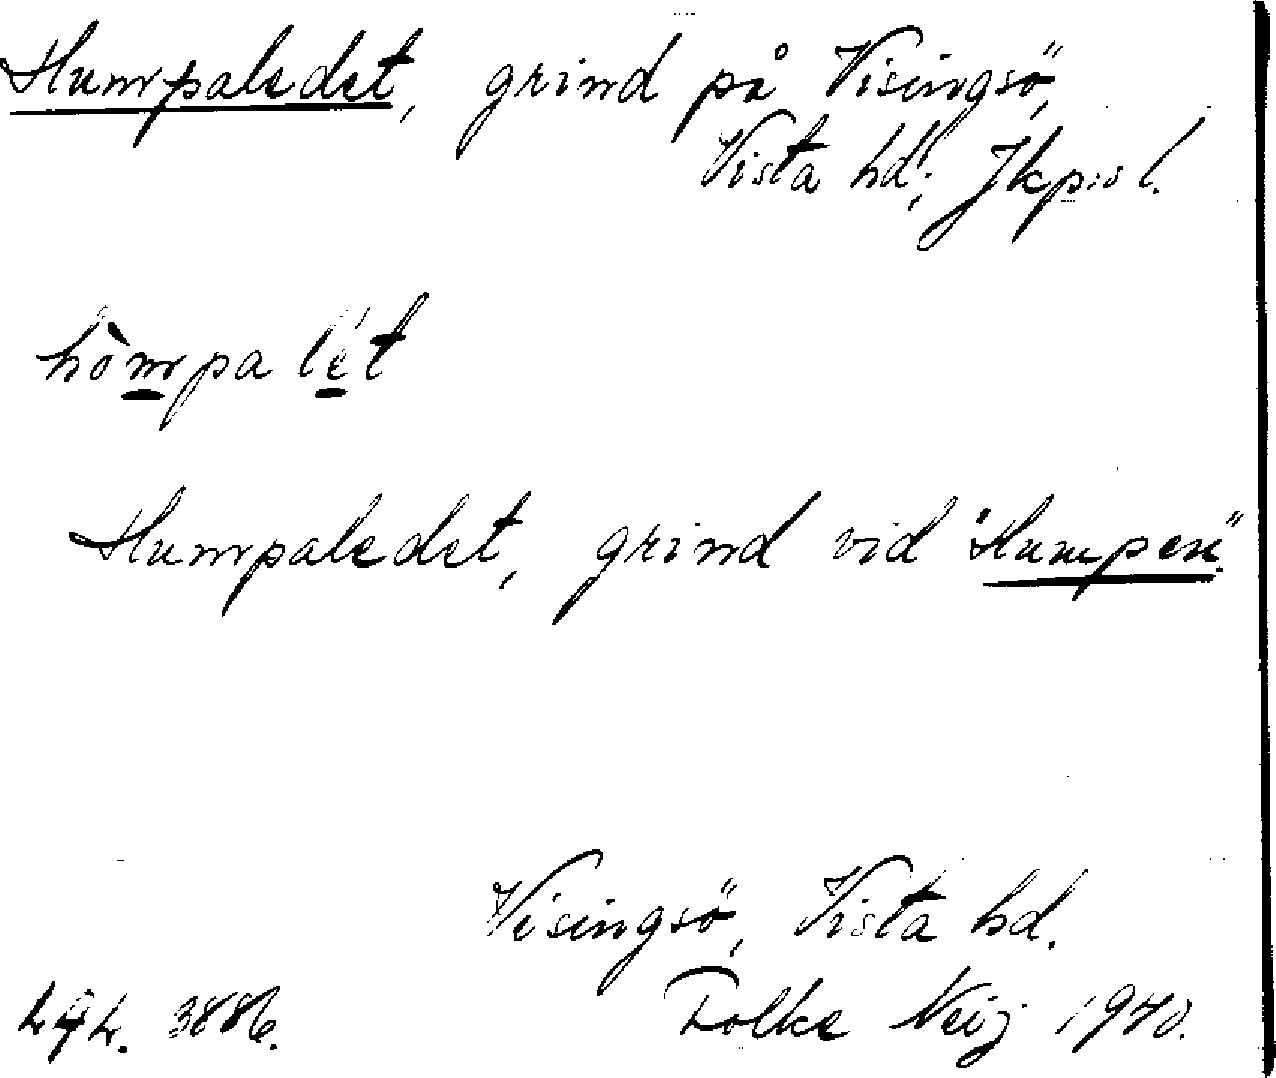 Humpaledet, grind på Visingsö,
Vista hd; Jkps l.
hòmpa lét
Humpaledet, grind vid "Humpen".
Visingsö, Vista hd.
3886. Folke Neij 1940.